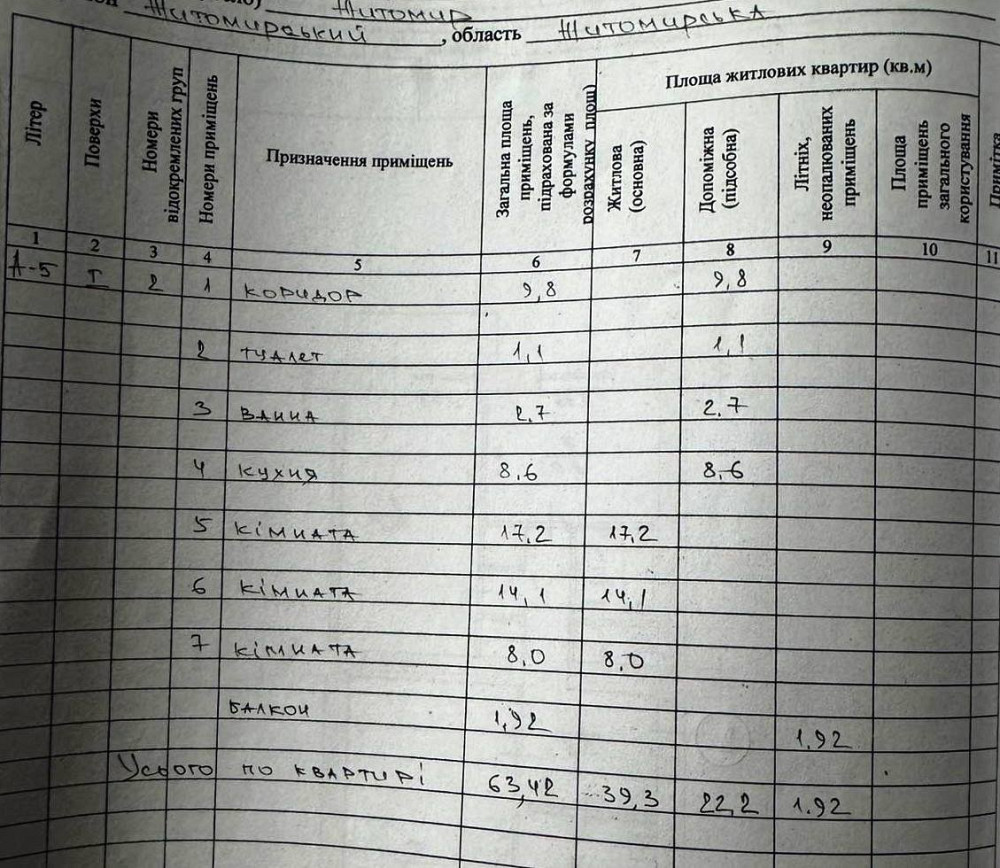 Житомир
Житомирський , область Житомирська
Літер
Поверхи
Номери відокремлених груп
Номери приміщень
Призначення приміщень
Загальна площа приміщень, підрахована за формулами розрахунку площ)
Площа житлових квартир (кв.м)
Житлова (основна)
Допоміжна (підсобна)
Літніх, неопалюваних приміщень
Площа приміщень загального користування
Примітка
1 2 3 4 5 6 7 8 9 10 11
А-5 I 2 1 коридор 9,8 9,8
2 туалет 1,1 1,1
3 ванна 2,7 2.7
4 кухня 8,6 8,6
5 кімната 17,2 17,2
6 кімната 14,1 14,1
7 кімната 8,0 8,0
балкон 1,92 1.92
Усього по квартирі 63,42 39,3 22,2 1.92